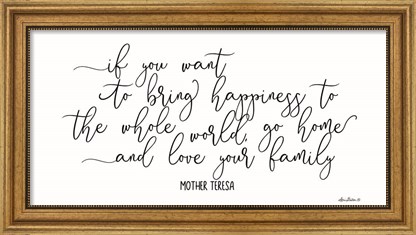 if you want
to bring happiness to
the whole world, go home
and love your family
MOTHER TERESA